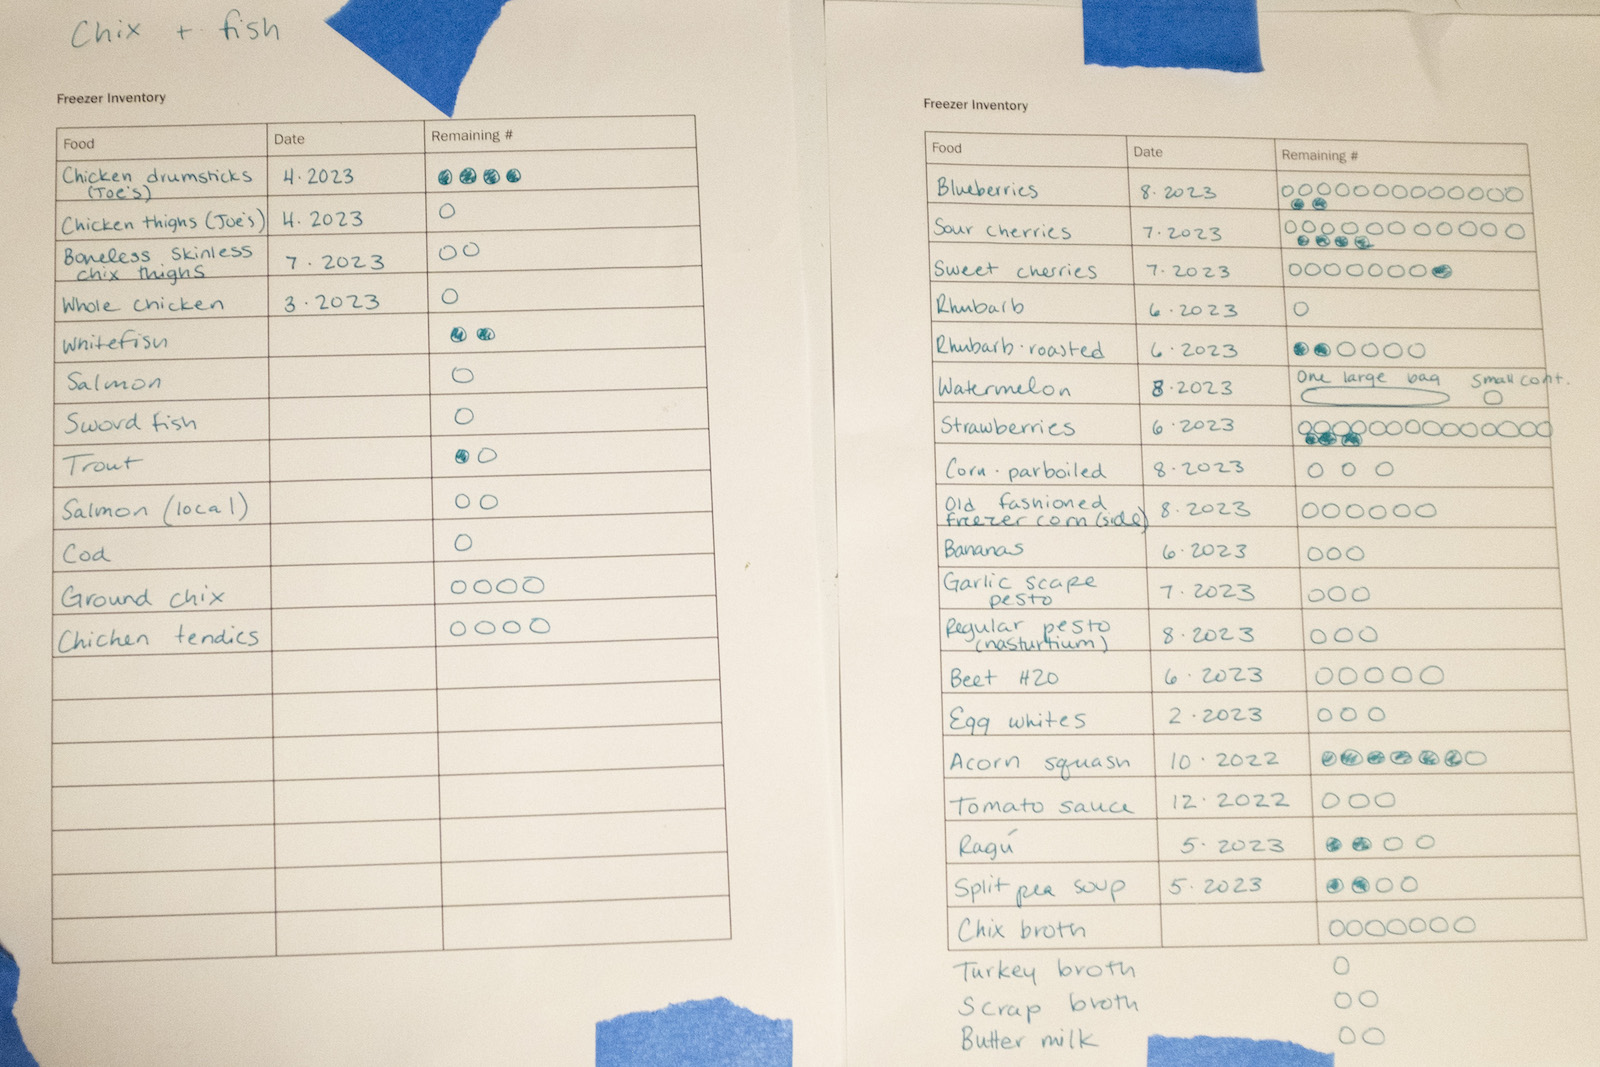 Chix + fish
Freezer Inventory
Food Date Remaining #
Chicken drumsticks 4.2023
(Joe's)
Chicken thighs (Joe's) 4.2023
Boneless skinless
chix thighs 7.2023
Whole chicken 3.2023
Whitefish
Salmon
Sword fish
Trout
Salmon (local)
Cod
Ground chix
Chichen tendies
Freezer Inventory
Food Date Remaining #
Blueberries 8.2023
Sour cherries 7.2023
Sweet cherries 7.2023
Rhubarb 6.2023
Rhubarb.roasted 6.2023
Watermelon 8.2023 One large bag small cont.
Strawberries 6.2023
Corn.parboiled 8.2023
Old fashioned
freezer corn (side) 8.2023
Bananas 6.2023
Garlic scape
pesto 7.2023
Regular pesto
(nasturtium) 8.2023
Beet H20 6.2023
Egg whites 2.2023
Acorn squash 10.2022
Tomato sauce 12.2022
Ragú 5.2023
Split pea soup 5.2023
Chix broth
Turkey broth
Scrap broth
Butter milk